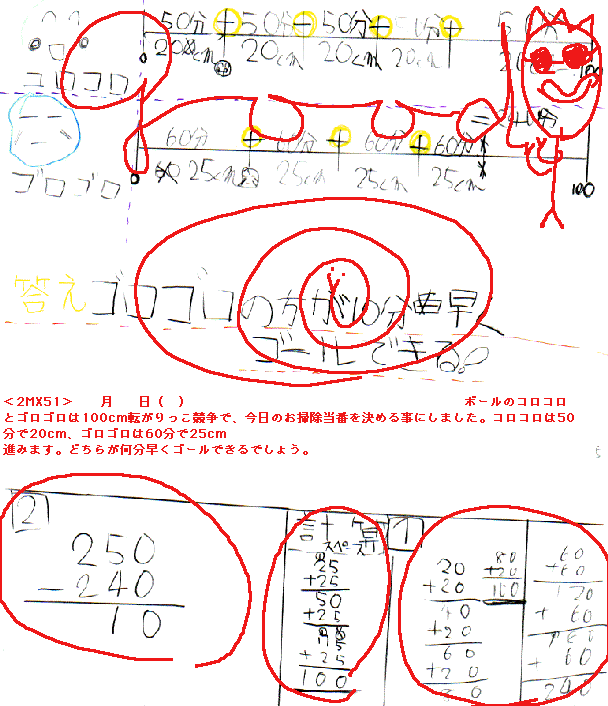 50分+50分+50分+50分+50分
20cm 20cm 20cm 20cm
コロコロ
60分+60分+60分+60分=240分
25cm 25cm 25cm 25cm
ゴロゴロ
100
答えゴロゴロの方が10分早く
ゴールできる。
<2MX51>　月　日( )　ボールのコロコロ
とゴロゴロは100cm転がりっこ競争で、今日のお掃除当番を決める事にしました。コロコロは50
分で20cm、ゴロゴロは60分で25cm
進みます。どちらが何分早くゴールできるでしょう。
2
250
-240
10
計算
スペース
25
+25
50
+25
75
+25
100
1
20
+20
40
+20
60
+20
80
80
+20
100
60
+60
120
+60
180
+60
240